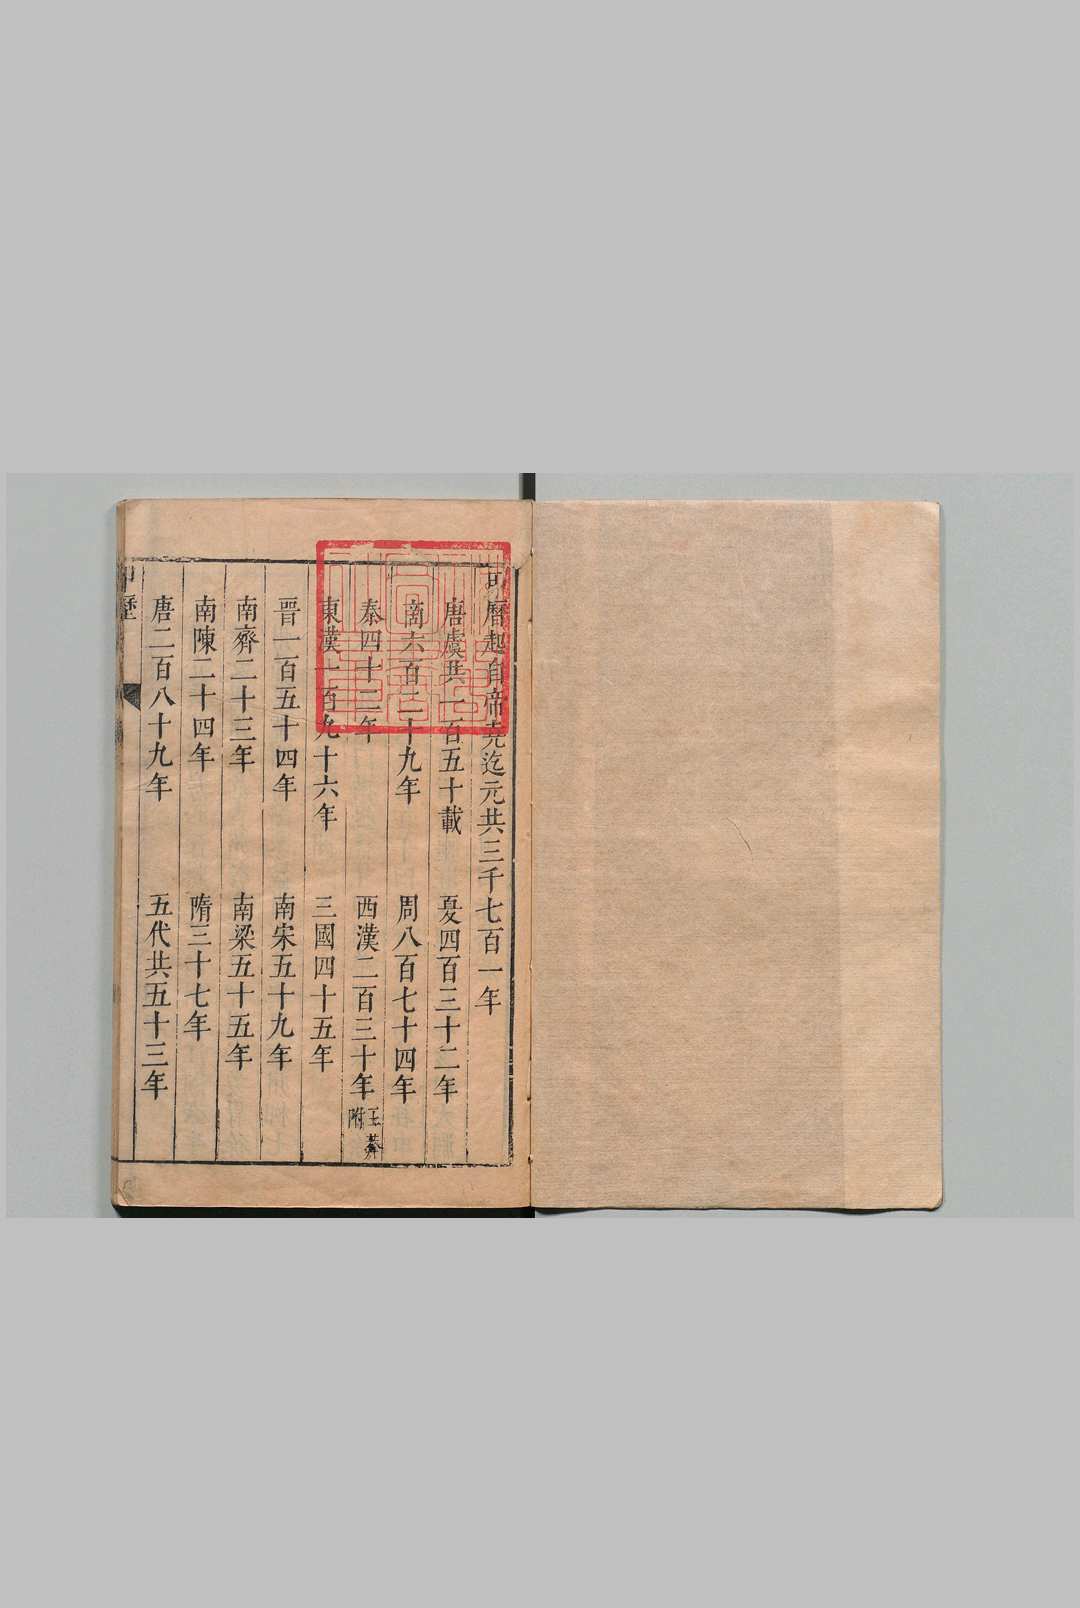 甲曆起自帝堯迄元共三千七百一年
唐虞共一百五十載 夏四百三十二年
商六百二十九年 周八百七十四年
秦四十二年 西漢二百三十年 王莽附
東漢一百九十六年 三國四十五年
晉一百五十四年 南宋五十九年
南齊二十三年 南梁五十五年
南陳二十四年 隋三十七年
唐二百八十九年 五代共五十三年
甲歷